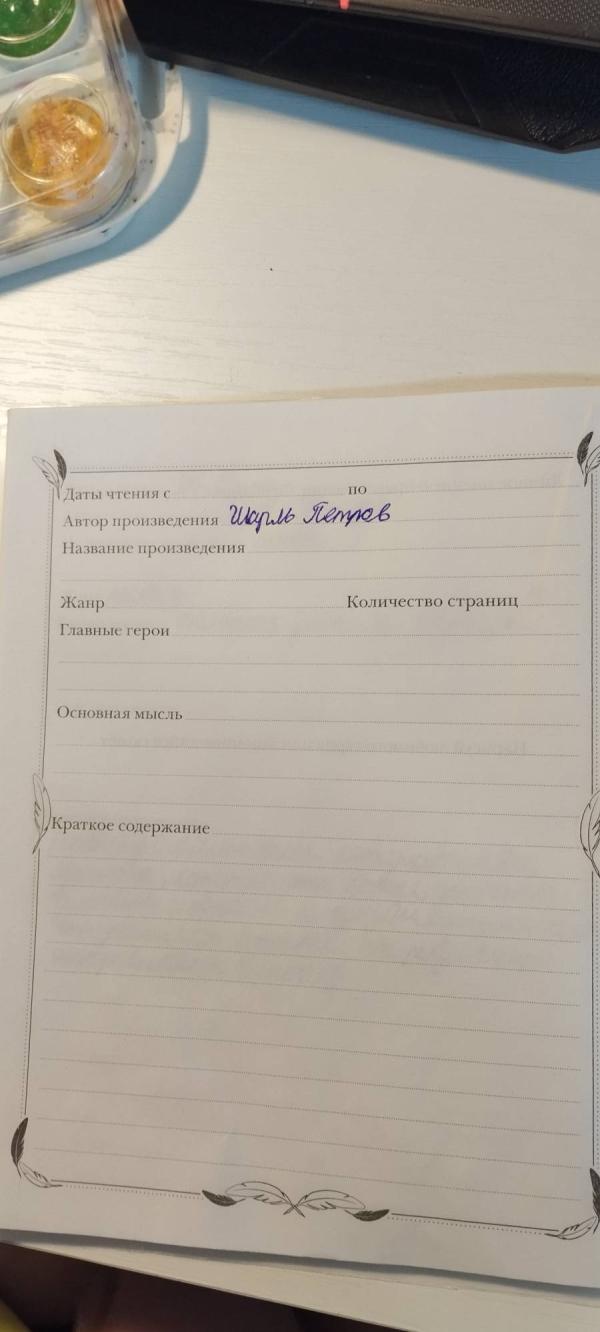 Даты чтения с по
Автор произведения Шарль Петров
Название произведения
Жанр Количество страниц
Главные герои
Основная мысль
Краткое содержание